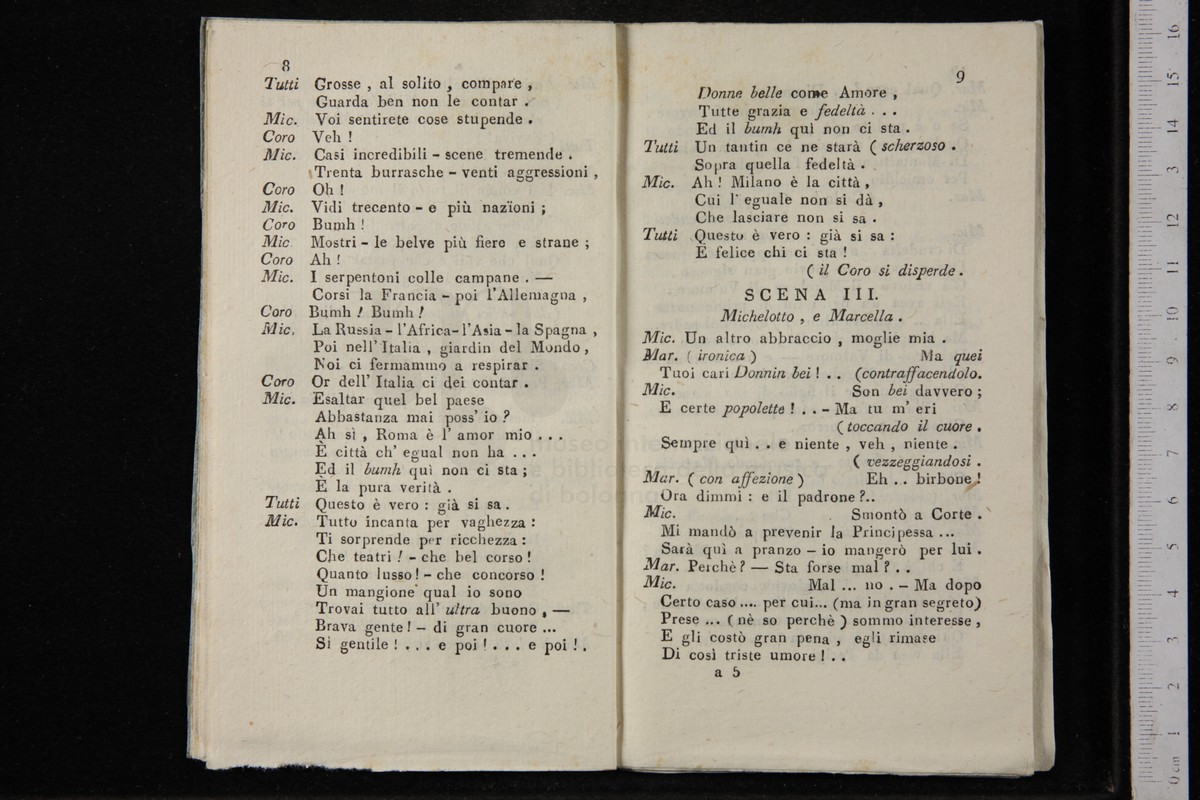 8
Tutti Grosse , al solito , compare ,
Guarda ben non le contar .
Mic. Voi sentirete cose stupende .
Coro Veh !
Mic. Casi incredibili - scene tremende .
Trenta burrasche - venti aggressioni ,
Coro Oh !
Mic. Vidi trecento - e più nazïoni ;
Coro Bumh !
Mic. Mostri - le belve più fiere e strane ;
Coro Ah !
Mic. I serpentoni colle campane . —
Corsi la Francia - poi l'Allemagna ,
Coro Bumh ! Bumh !
Mic. La Russia - l'Africa- l'Asia - la Spagna ,
Poi nell' Italia , giardin del Mondo ,
Noi ci fermammo a respirar .
Coro Or dell' Italia ci dei contar .
Mic. Esaltar quel bel paese
Abbastanza mai poss' io ?
Ah sì , Roma è l' amor mio . . .
È città ch' egual non ha . . .
Ed il bumh quì non ci sta ;
È la pura verità .
Tutti Questo è vero : già si sa .
Mic. Tutto incanta per vaghezza :
Ti sorprende per ricchezza :
Che teatri ! - che bel corso !
Quanto lusso ! - che concorso !
Un mangione qual io sono
Trovai tutto all' ultra buono , —
Brava gente ! - di gran cuore ...
Si gentile ! . . . e poi ! . . . e poi ! .
9
Donne belle come Amore ,
Tutte grazia e fedeltà . . .
Ed il bumh quì non ci sta .
Tutti Un tantin ce ne starà ( scherzoso .
Sopra quella fedeltà .
Mic. Ah ! Milano è la città ,
Cui l' eguale non si dà ,
Che lasciare non si sa .
Tutti Questo è vero : già si sa :
E felice chi ci sta !
( il Coro si disperde .
SCENA III.
Michelotto , e Marcella .
Mic. Un altro abbraccio , moglie mia .
Mar. ( ironica ) Ma quei
Tuoi cari Donnin bei ! . . (contraffacendolo.
Mic. Son bei davvero ;
E certe popolette ! . . - Ma tu m' eri
( toccando il cuore .
Sempre quì . . e niente , veh , niente .
( vezzeggiandosi .
Mar. ( con affezione ) Eh . . birbone !
Ora dimmi : e il padrone ?..
Mic. Smontò a Corte .
Mi mandò a prevenir la Principessa ...
Sarà quì a pranzo — io mangerò per lui .
Mar. Perchè ? — Sta forse mal ? . .
Mic. Mal ... no . - Ma dopo
Certo caso .... per cui... (ma in gran segreto)
Prese ... ( nè so perchè ) sommo interesse ,
E gli costò gran pena , egli rimase
Di così triste umore ! . .
a 5
museo internazionale
e biblioteca della musica
di bologna
16
15
14
13
12
11
10
9
8
7
6
5
4
3
2
1
0 cm